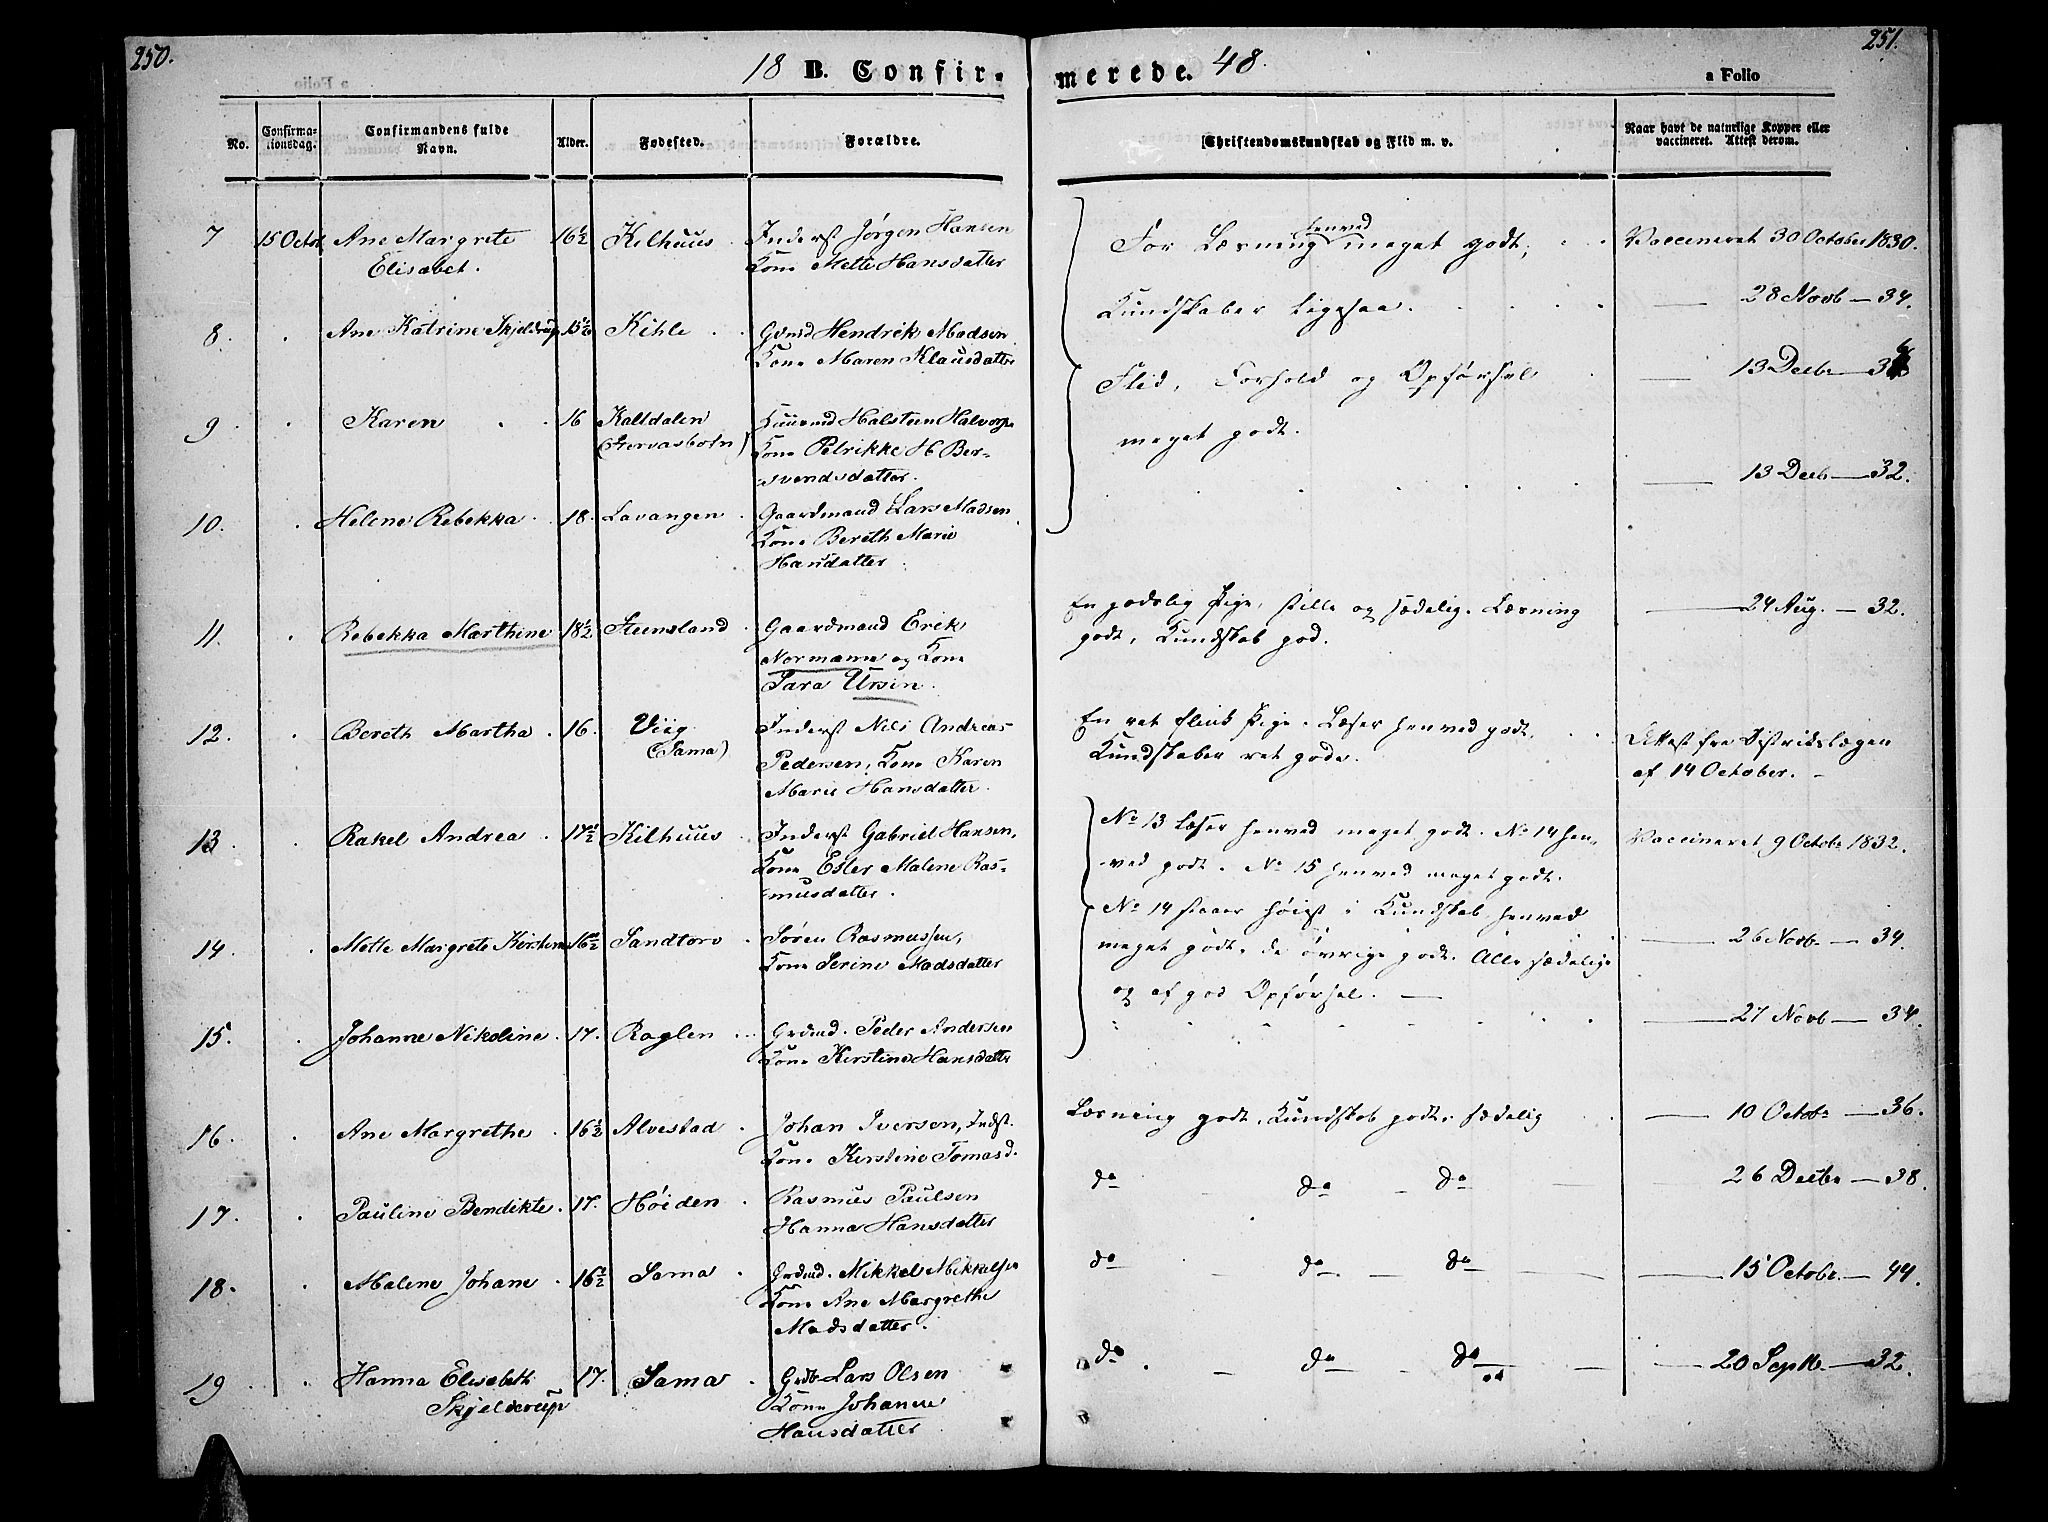 250.
251.
18 B. Confirmerede. 48.
a Folio
No. Confirmationsdag. Confirmandens fulde Navn. Alder. Fødested. Forældre. Christendomskundskab og Flid m. v. Naar havt de naturlige Kopper eller vaccineret. Attest derom.
7 15 Octor Ane Margrete 16½ Kilhuus Inderst Jørgen Hansen
Elisabet. Kone Mette Hansdatter
For Læsning henved meget godt,
Vaccineret 30 October 1830.
8. Ane Katrine Skjeldrup 15½ Kihle Grmd Hendrik Madsen
Kone Maren Klausdatter
Kundskaber ligesaa.
28 Novb — 34.
Flid, Forhold og Opførsel
meget godt.
13 Decbr — 36
9 Karen 16 Kaltdalen Huusmd Halsteen Halvors
(Gervasbotn) Kone Petrikke H Ber-
svendsdatter.
13 Decb — 32.
10. Helene Rebekka 18. Lavangen Gaardmand Lars Madsen
Kone Bereth Marie
Hansdatter
24 Aug. — 32.
11. Rebekka Marthine 18½ Steensland Gaardmand Erik
Normann og Kone
Sara Ursin.
En godslig Pige, stille og sædelig. Læsning
godt, Kundskab god.
12. Bereth Martha 16. Viig Inderst Nils Andreas
(Sama) Pedersen, Kone Karen
Marie Hansdatter.
En ret flink Pige. Læser henved godt.
Kundskaber ret gode.
Attest fra Distriktslægen
af 14 October.
13 Rakel Andrea 17½ Kilhuus Inderst Gabriel Hansen,
Kone Ester Malene Ras-
musdatter.
No 13 Læser henved meget godt. No 14 hen-
ved godt. No 15 henved meget godt.
Vaccineret 9 Octobr 1832.
14. Mette Margrete Kirstine 16½ Sandtorv Søren Rasmussen,
Kone Serine Madsdatter
No 14 staaer høiest i Kundskab, henved
meget godt, de øvrige godt. Alle sædelige
og af god Opførsel.
26 Novb — 34.
15. Johanne Nikoline 17. Roglen Grdmd. Peder Andersen
Kone Kirstine Hansdatter
27 Novb — 34.
16. Ane Margrethe 16½ Alvestad Johan Iversen, Indst.
Kone Kirstine Tomasd.
Læsning godt, Kundskab godt, sædelig
10 Octobr — 36.
17. Pauline Bendikte 17. Høiden Rasmus Paulsen
Hanna Hansdatter
do — do — do
26 Decbr — 38.
18. Malene Johane 16½ Sama Grdmd. Mikkel Mikkelsen
Kone Ane Margrethe
Madsdatter.
do — do — do
15 Octobr. — 44.
19 Hanna Elisabeth 17. Sama Grdb Lars Olsen
Skjelderup Kone Johanne
Hansdatter
do — do — do
20 Septb. — 32.